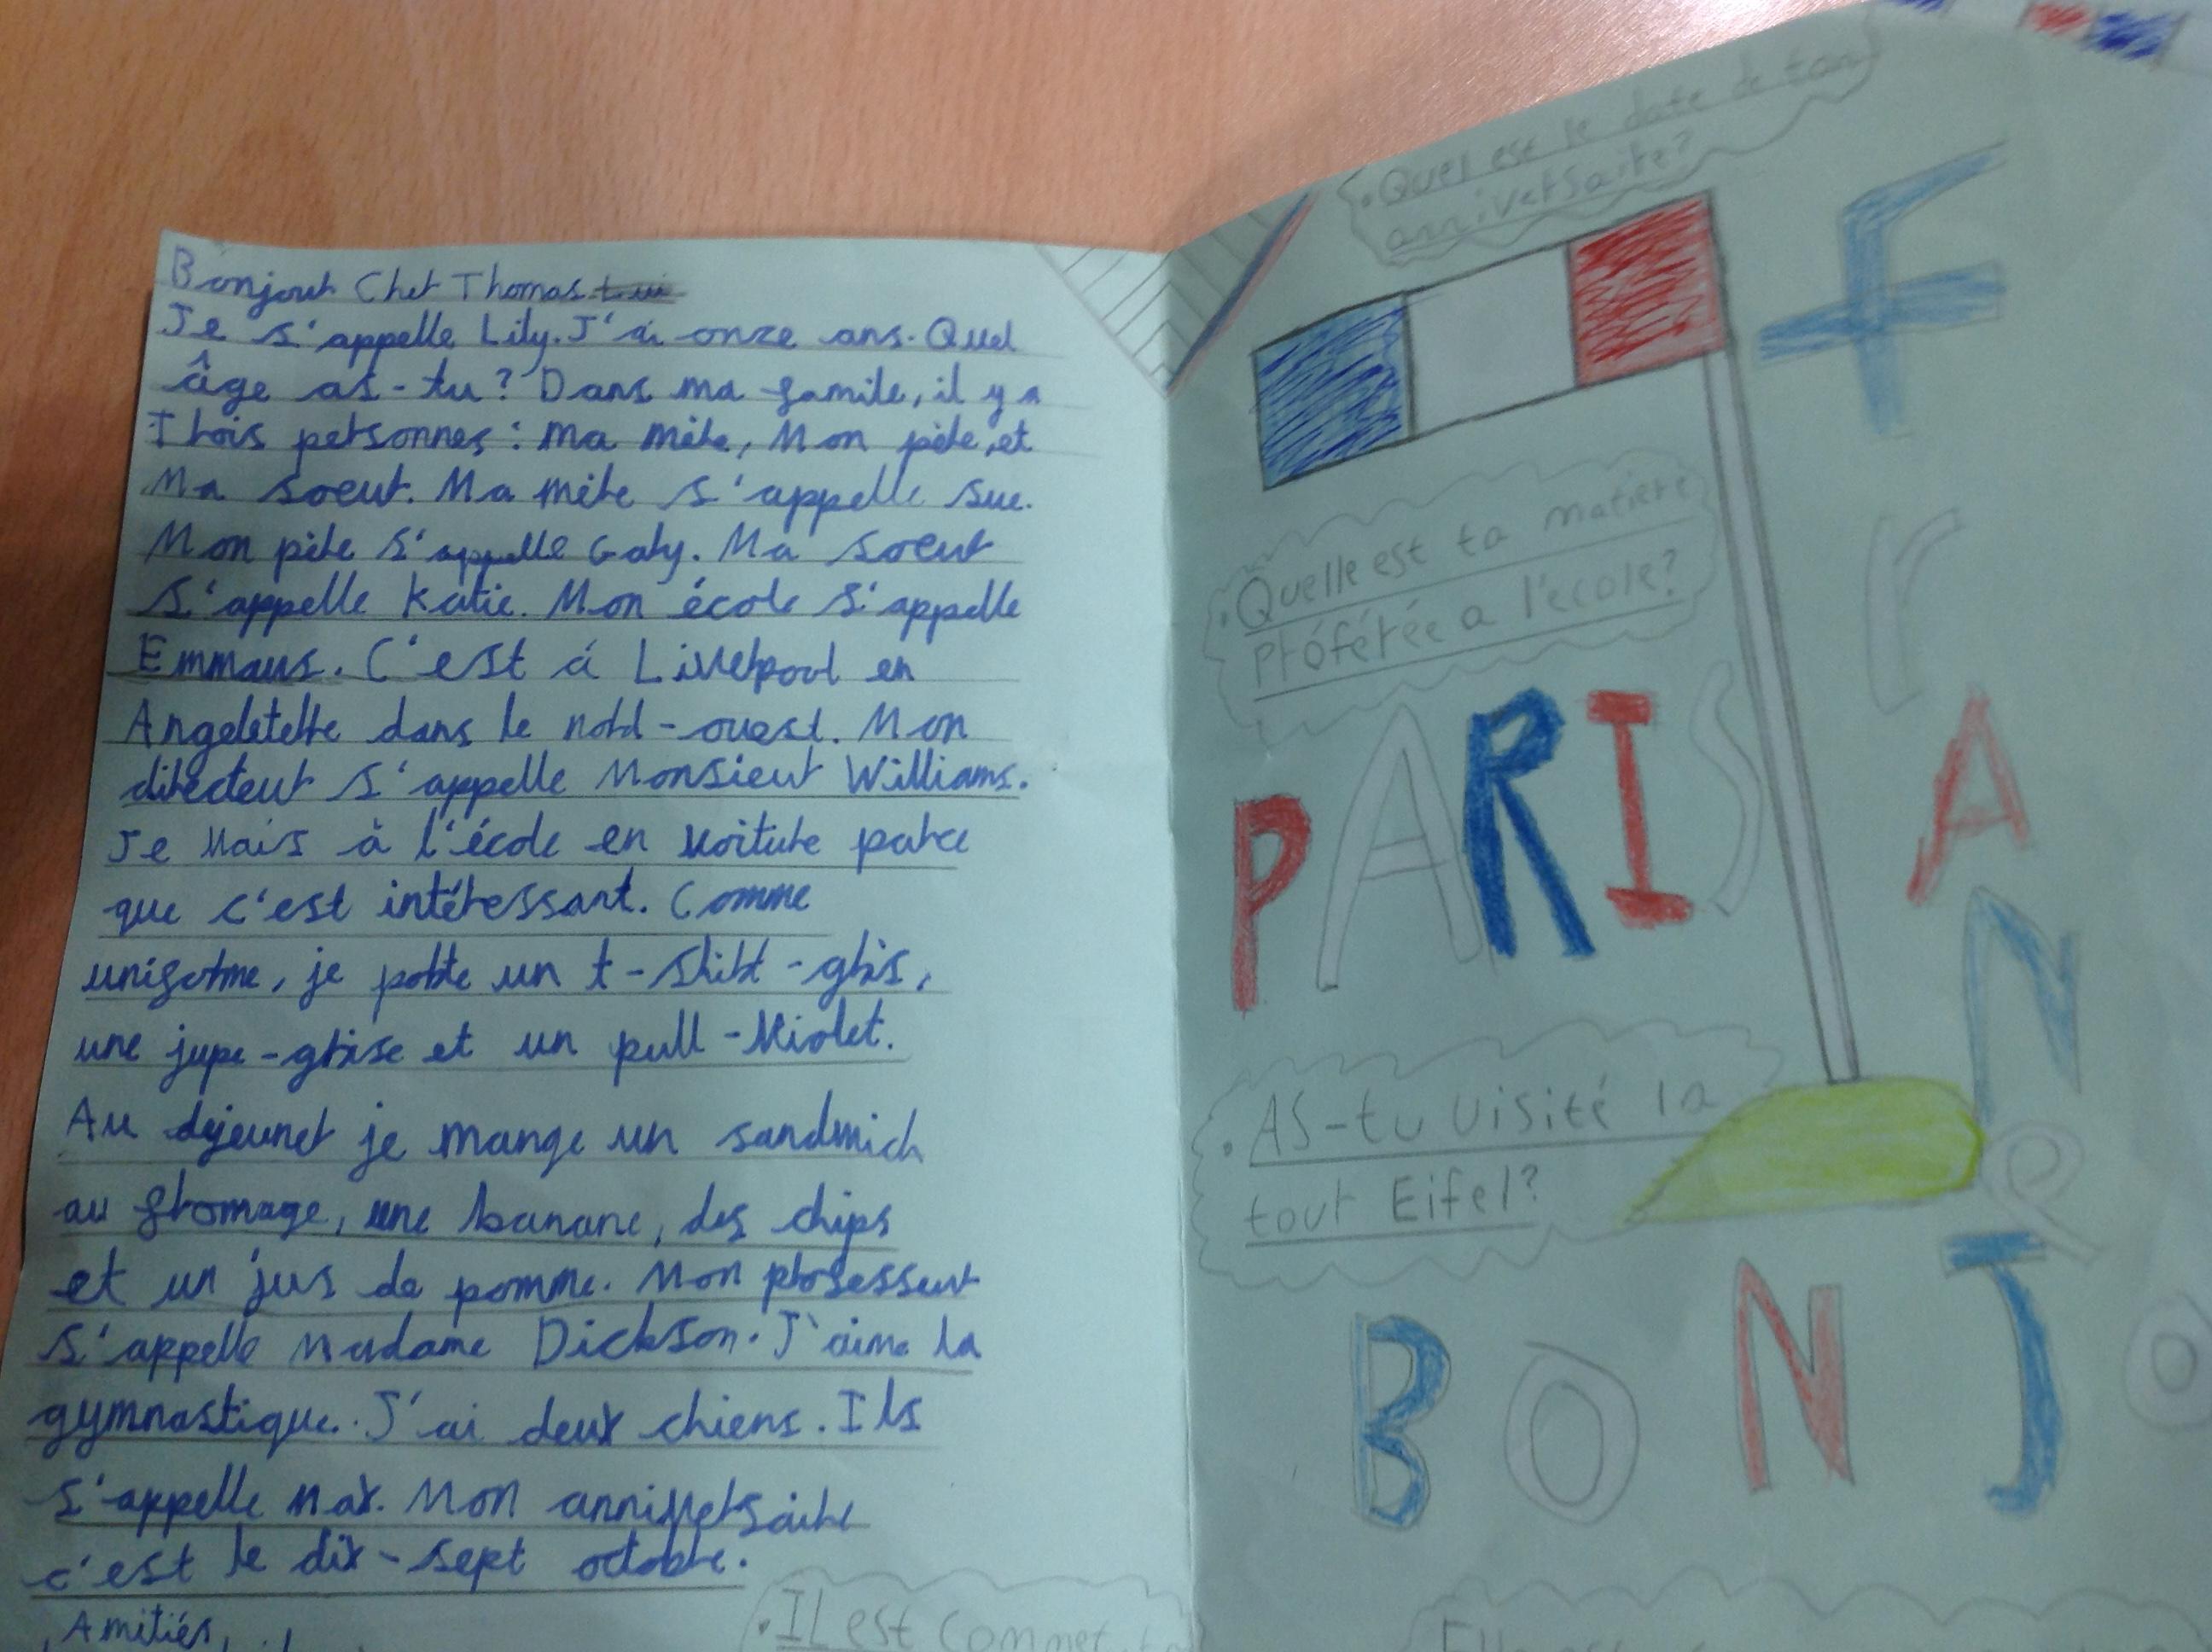 Bonjour Cher Thomas
Je s'appelle Lily. J'ai onze ans. Quel
âge as-tu? Dans ma famile, il y a
Trois personnes: Ma mère, Mon père, et
Ma soeur. Ma mère s'appelle Sue.
Mon père s'appelle Gary. Ma soeur
s'appelle Katie. Mon école s'appelle
Emmaus. C'est á Liverpool en
Angeleterre dans le nord-ouest. Mon
directeur s'appelle Monsieur Williams.
Je vais à l'école en voiture parce
que c'est intéressant. Comme
uniforme, je porte un t-shirt-gris,
une jupe-grise et un pull-violet.
Au dejeuner je mange un sandwich
au fromage, une banane, des chips
et un jus de pomme. Mon professeur
s'appelle Madame Dickson. J'aime la
gymnastique. J'ai deux chiens. Ils
s'appelle Max. Mon anniversaire
c'est le dix-sept octobre.
Amitiés,
• IL est comment
• Quel est le date de ton
anniversaire?
FrANce
• Quelle est ta matiere
préférée a l'école?
PARIS
• AS-tu visité la
tour Eifel?
BONJO